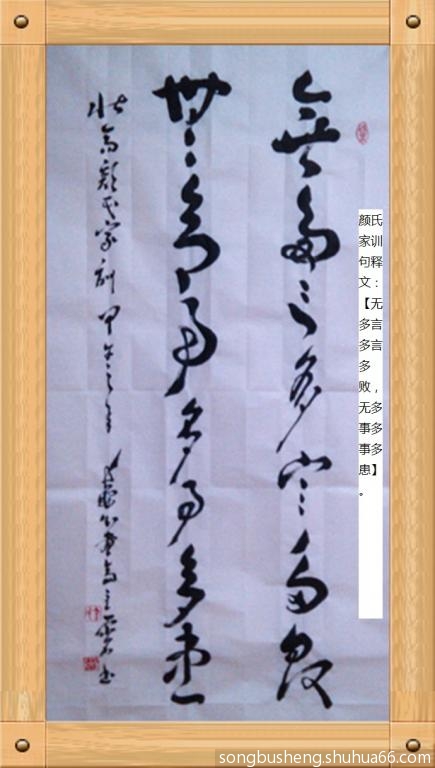 無多言多言多敗
無多事多事多患
顏氏家訓 甲午之年
颜氏
家训
句释
文：
【无
多言
多言
多
败，
无多
事多
事多
患】
。
songbusheng.shuhua66.com